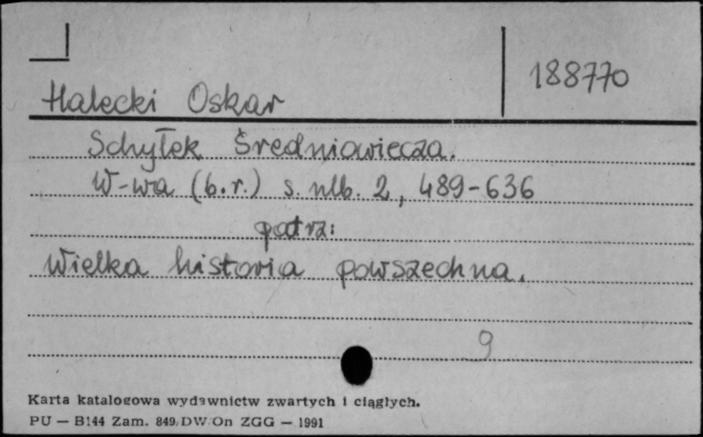 188770
Halecki Oskar
Schyłek Średniowiecza.
W-wa (b.r.) s. nlb. 2, 489-636
patrz:
Wielka historia powszechna.
9
Karta katalogowa wydawnictw zwartych i ciągłych.
PU — B144 Zam. 849/DW/On ZGG — 1991